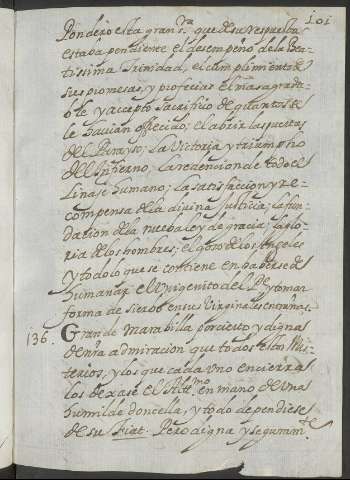 101
Ponderó esta gran S.ra que de su respuesta
estaba pendiente el desempeño de la Bea-
tissima Trinidad, el cumplimiento de
sus promesas, y profecias el mas agrada-
ble y accepto sacrificio de quantos se
le havian offrecido; el abrir las puertas
del Parayso; La Victoria y triumpho
del Infierno; la redencion de todo el
Linage humano; la satisfaccion y re-
compensa de la divina justicia; la fun-
dacion de la nueba ley de gracia; la glo-
ria de los hombres; el gozo de los Angeles
y todo lo que se contiene en haberse de
humanar el Unigenito del P.e y tomar
forma de siervo en sus Virginales entrañas.
136. Grande marabilla por cierto, y digna
de nra admiracion que todos estos Mis-
terios, y los que cada uno encierra
los dexase el Altmo en mano de una
humilde doncella, y todo dependiese
de su fiat. Pero digna y seguram.te